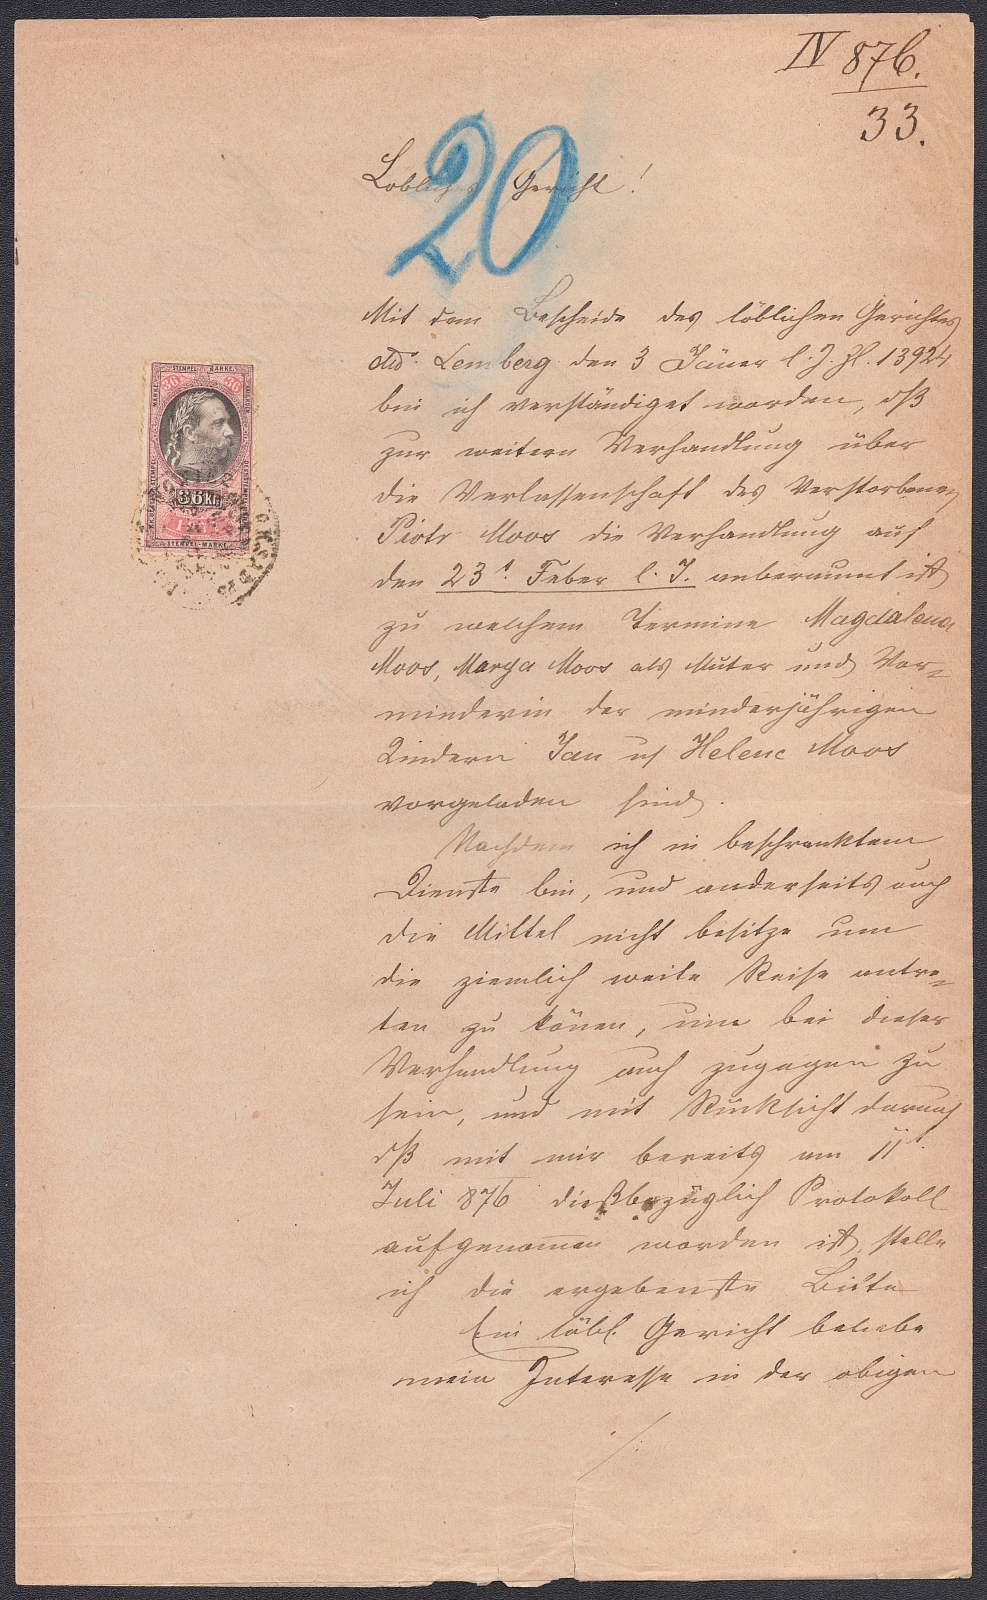 IV 876.
33.
20
Löbliches Gericht!
Mit dem Bescheide des löblichen Gerichtes
dto. Lemberg den 3 Jäner l. J. Zl. 13924
bin ich verständiget worden, dß
zur weitern Verhandlung über
die Verlassenschaft des Verstorbenen
Piotr Moos die Verhandlung auf
den 23t. Feber l. J. anberaumt ist
zu welchem Termine Magdalena
Moos, Marya Moos als Muter und Vor-
minderin der minderjährigen
Kindern Jan u Helene Moos
vorgeladen sind.
Nachdem ich in beschranktem
Dienste bin, und anderseits auch
die Mittel nicht besitze um
die ziemlich weite Reise antre-
ten zu könen, um bei dieser
Verhandlung auch zugegen zu
sein, und mit Rücksicht darauf
dß mit mir bereits am 11t.
Juli 876 dießbezüglich Protokoll
aufgenomen worden ist, stelle
ich die ergebenste Bitte
Ein löbl. Gericht beliebe
mein Interesse in der obigen
./.
STEMPEL MARKE
36 36
36 Kr.
STEMPEL-MARKE